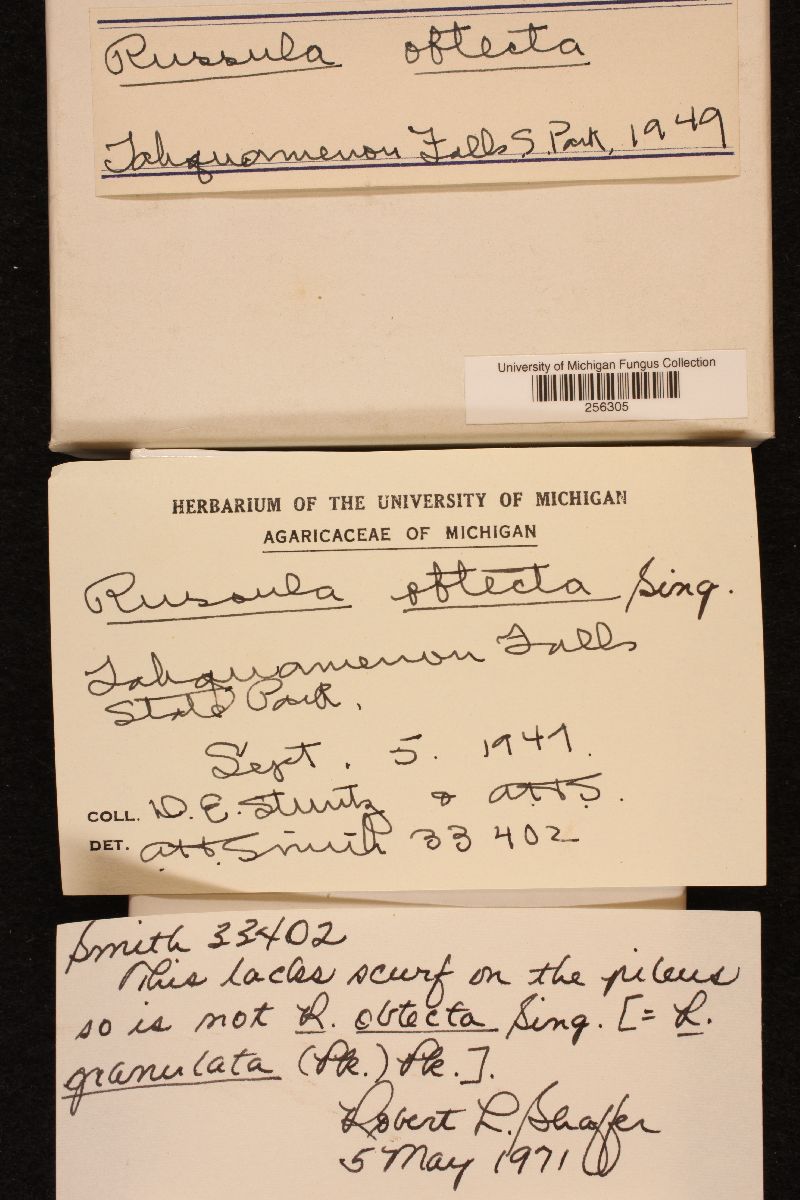 Russula obtecta
Tahquamenon Falls S. Park, 1949
University of Michigan Fungus Collection
256305
HERBARIUM OF THE UNIVERSITY OF MICHIGAN
AGARICACEAE OF MICHIGAN
Russula obtecta Sing.
Tahquamenon Falls
State Park.
Sept. 5. 1949.
COLL. D. E. Stuntz & AHS.
DET. A.H. Smith 33 402
Smith 33402
This lacks scurf on the pileus
so is not R. obtecta Sing. [= R.
granulata (Pk.) Pk.].
Robert L. Shaffer
5 May 1971